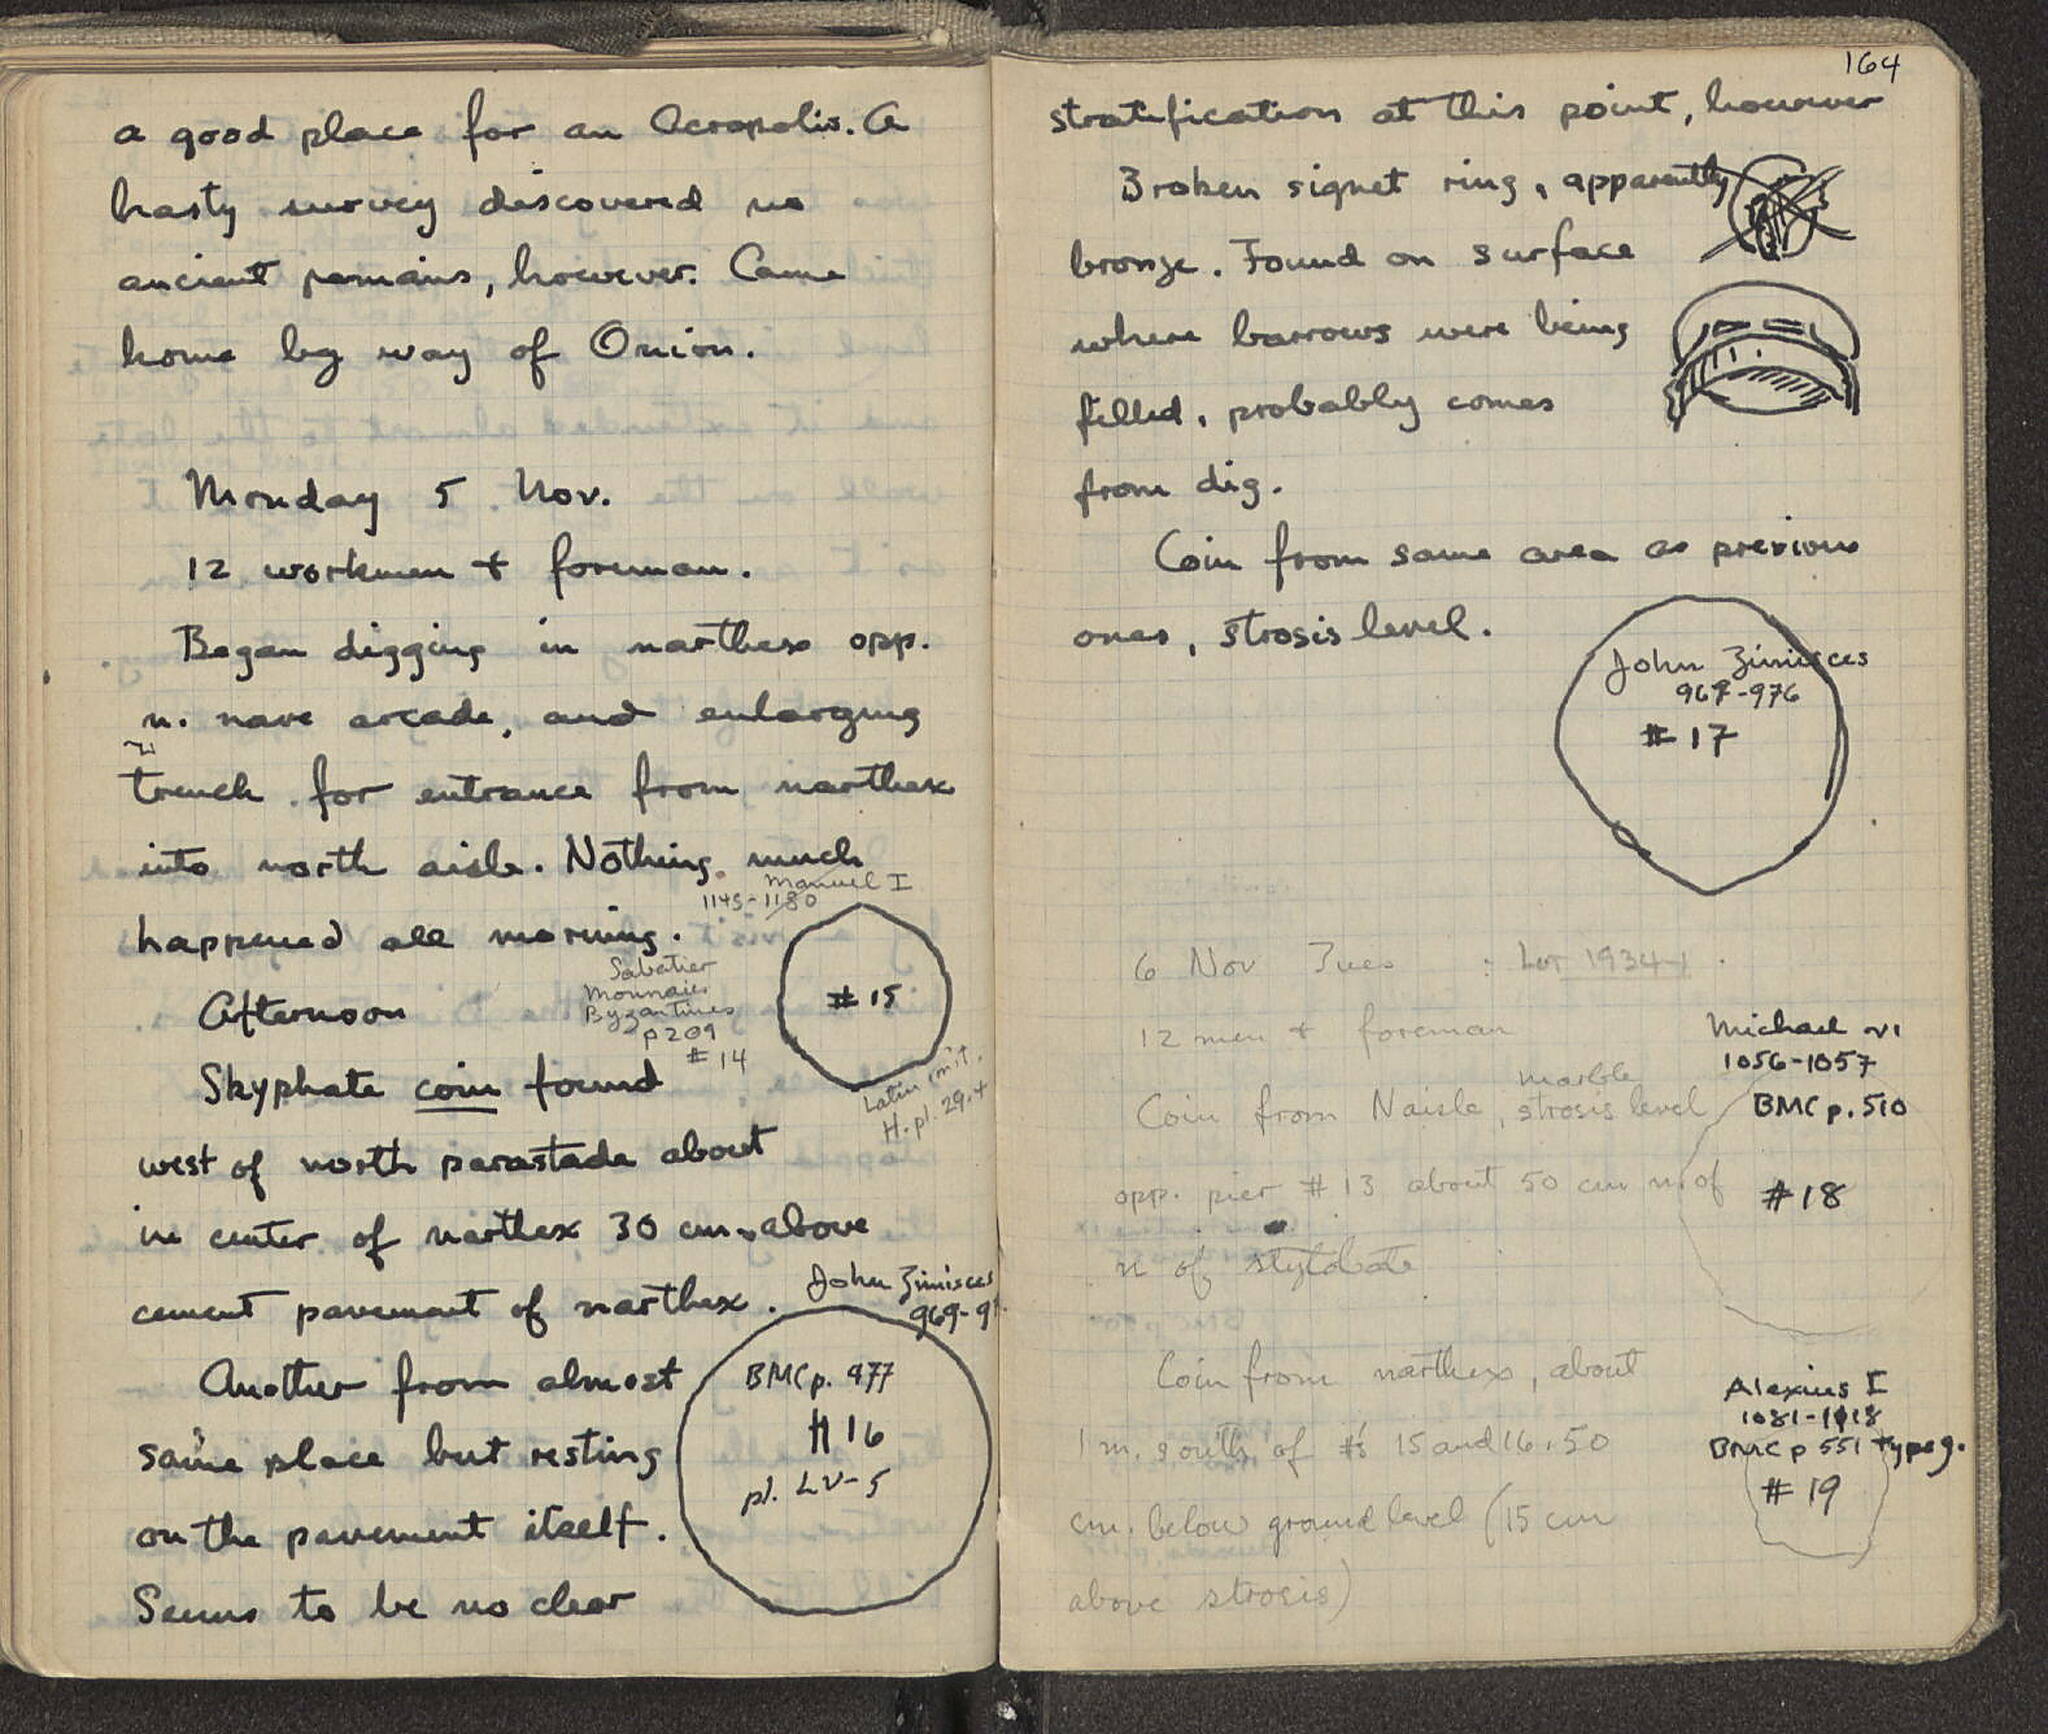 a good place for an Acropolis. A
hasty survey discovered no
ancient remains, however. Came
home by way of Onion.
Monday 5 Nov.
12 workmen + foreman.
Began digging in narthex opp.
n. nave arcade, and enlarging
trench for entrance from narthex
into north aisle. Nothing much
Manuel I
1143-1180
happened all morning.
Sabatier
Monnaies
Byzantines
p 209
#14
#15
Latin imit.
H. pl. 29.4
Afternoon
Skyphate coin found
west of north parastade about
in center of narthex 30 cm. above
cement pavement of narthex.
John Zimisces
969-9
Another from almost
same place but resting
on the pavement itself.
Seems to be no clear
BMC p. 477
# 16
pl. LV-5
164
stratification at this point, however
Broken signet ring, apparently
bronze. Found on surface
where barrows were being
filled, probably comes
from dig.
Coin from same area as previous
ones, strosis level.
John Zimisces
969-976
#17
6 Nov Tues : Lot 1934-1.
12 men + foreman
Michael VI
1056-1057
BMC p. 510
#18
marble
Coin from N aisle, strosis level
opp. pier #13 about 50 cm n. of
n of stylobate
Coin from narthex, about
1 m. south of #s 15 and 16, 50
cm. below ground level (15 cm
above strosis)
Alexius I
1081-1118
BMC p 551 type 9.
#19